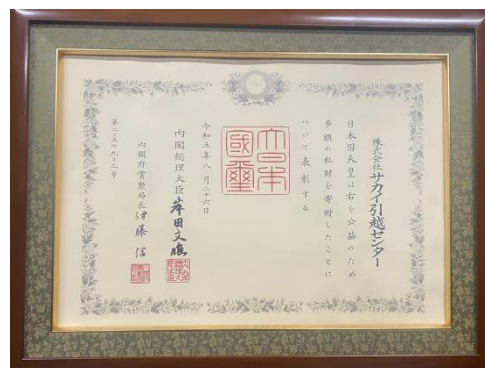 株式会社サカイ引越センター
日本国天皇は右を公益のため
多額の私財を寄附したことに
ついて表彰する
令和五年八月二十六日
大日本國璽
内閣総理大臣 岸田文雄
内閣府賞勲局長 伊藤信